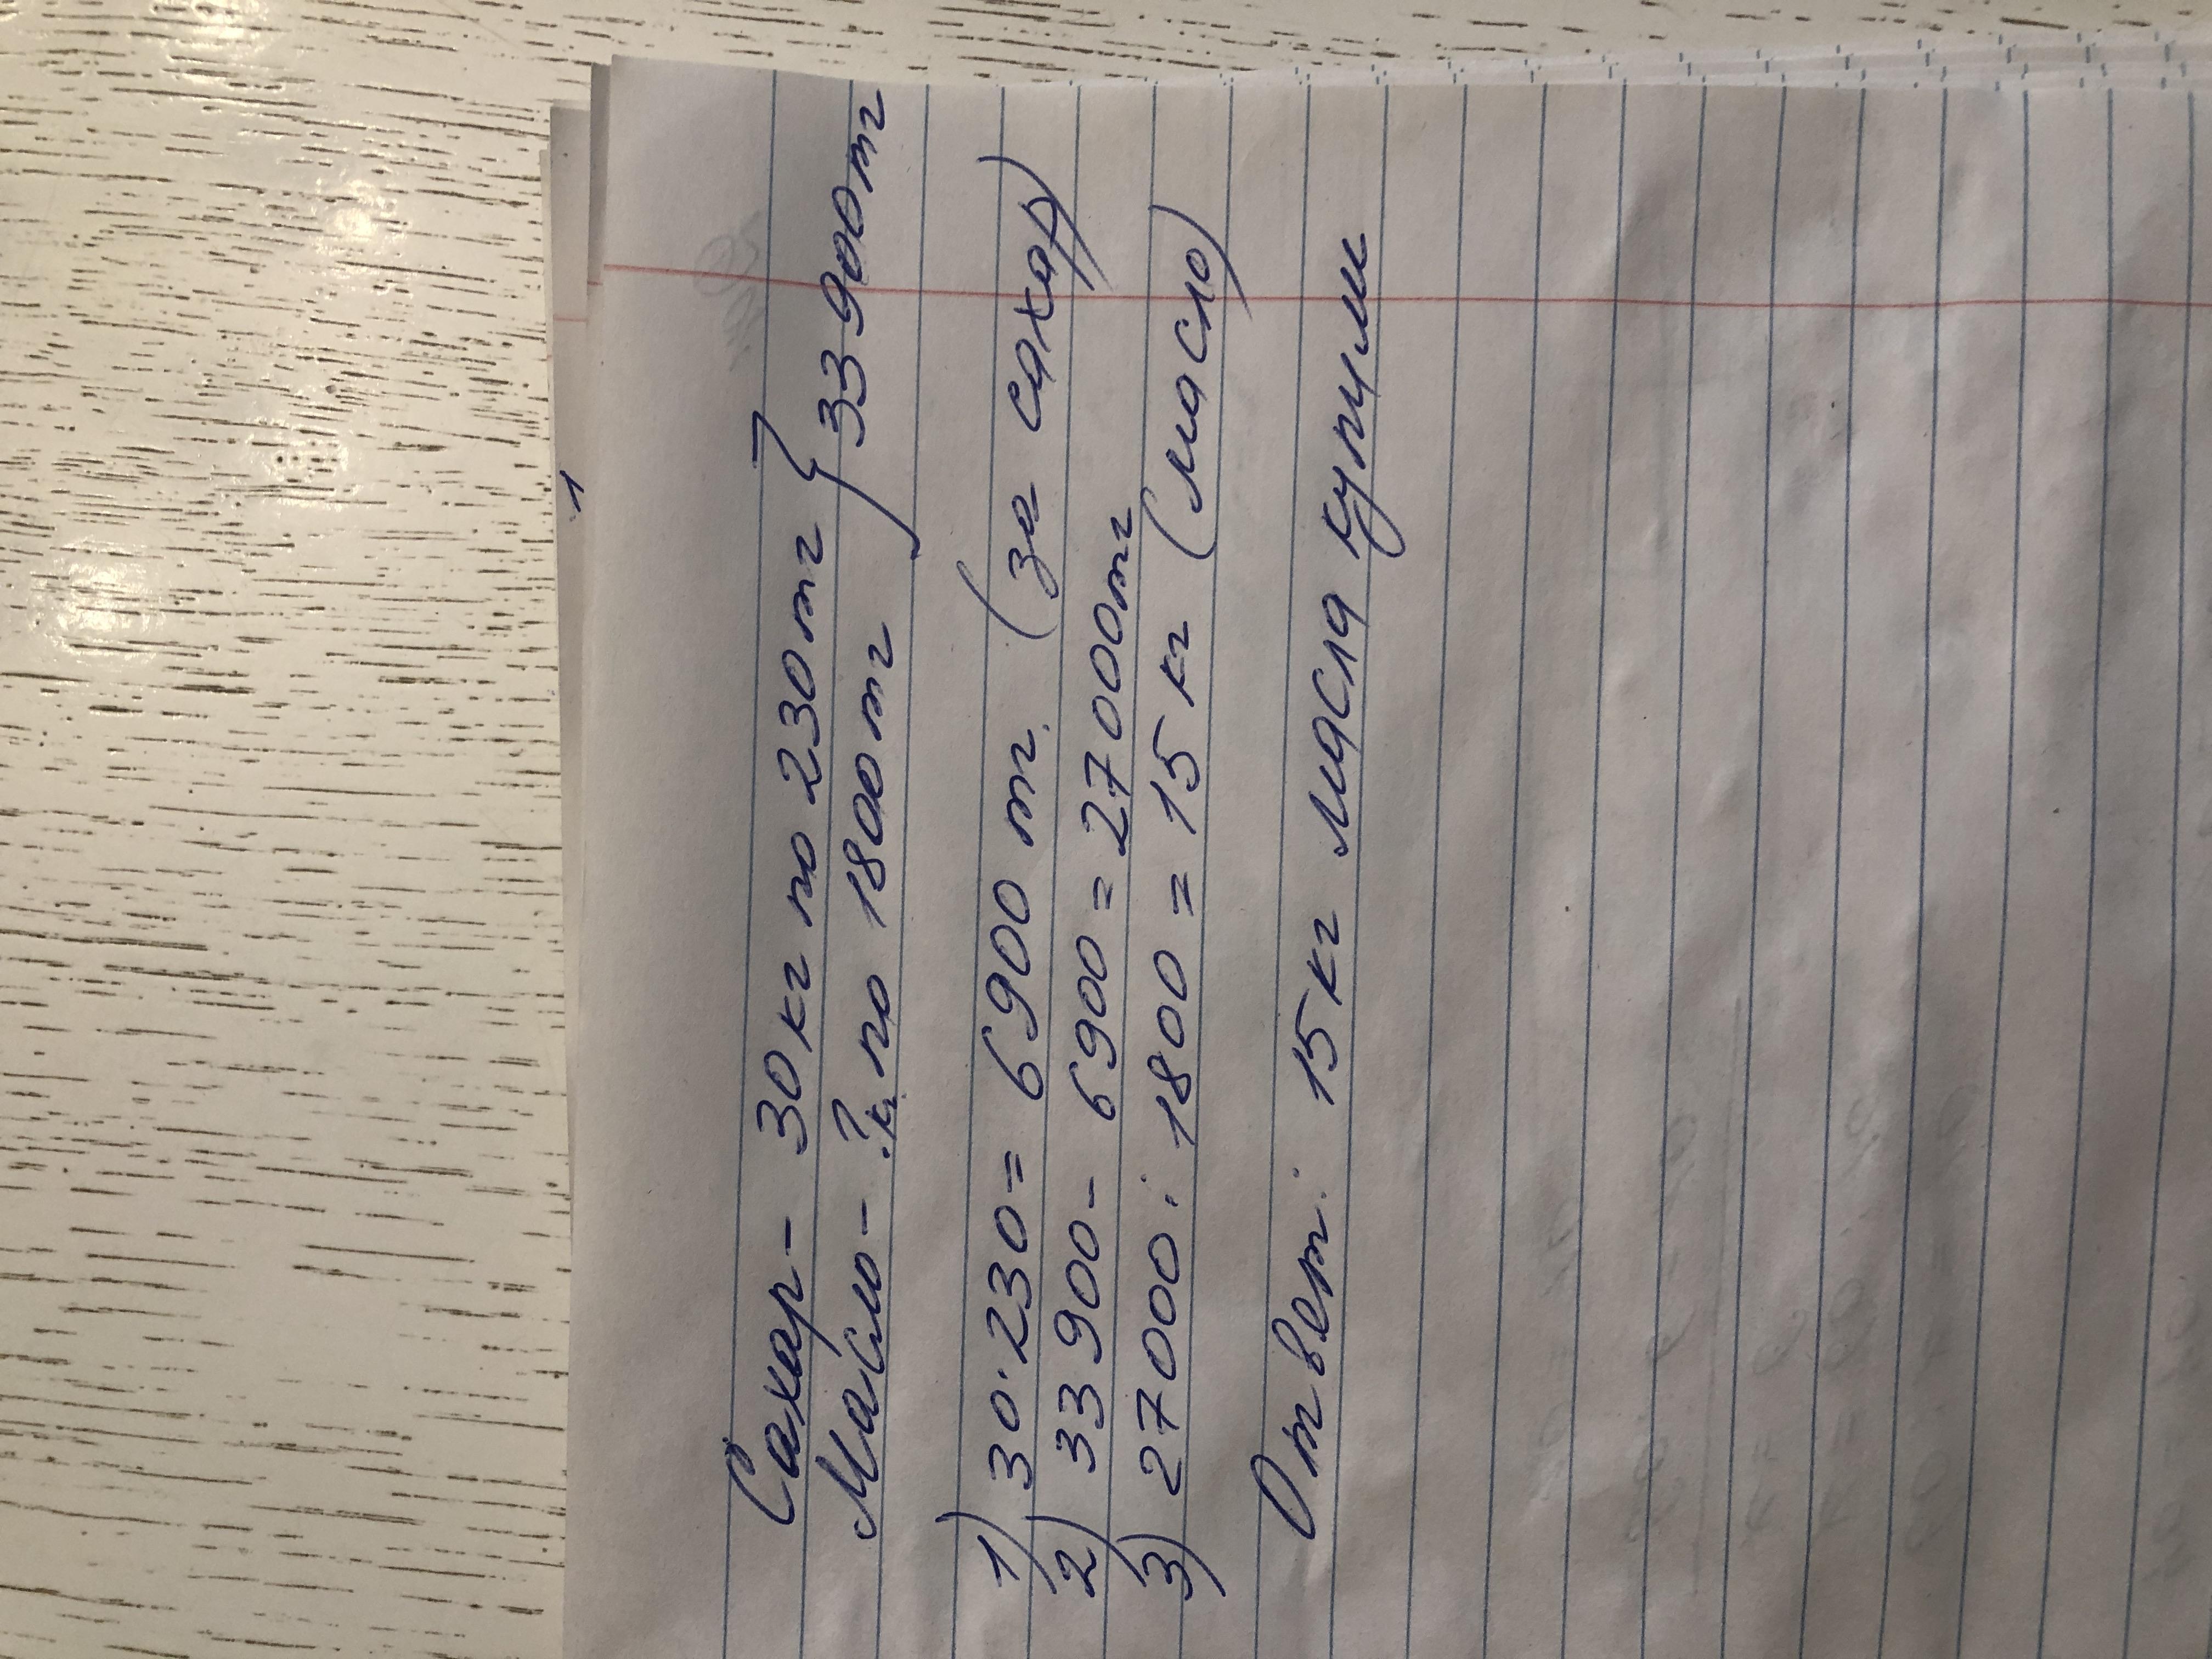 Сахар - 30 кг по 230 тг } 33 900 тг
Масло - ? кг. по 1800 тг
1) 30 · 230 = 6900 тг. (за сахар)
2) 33 900 - 6900 = 27 000 тг
3) 27 000 : 1800 = 15 кг (масло)
Ответ: 15 кг масла купили